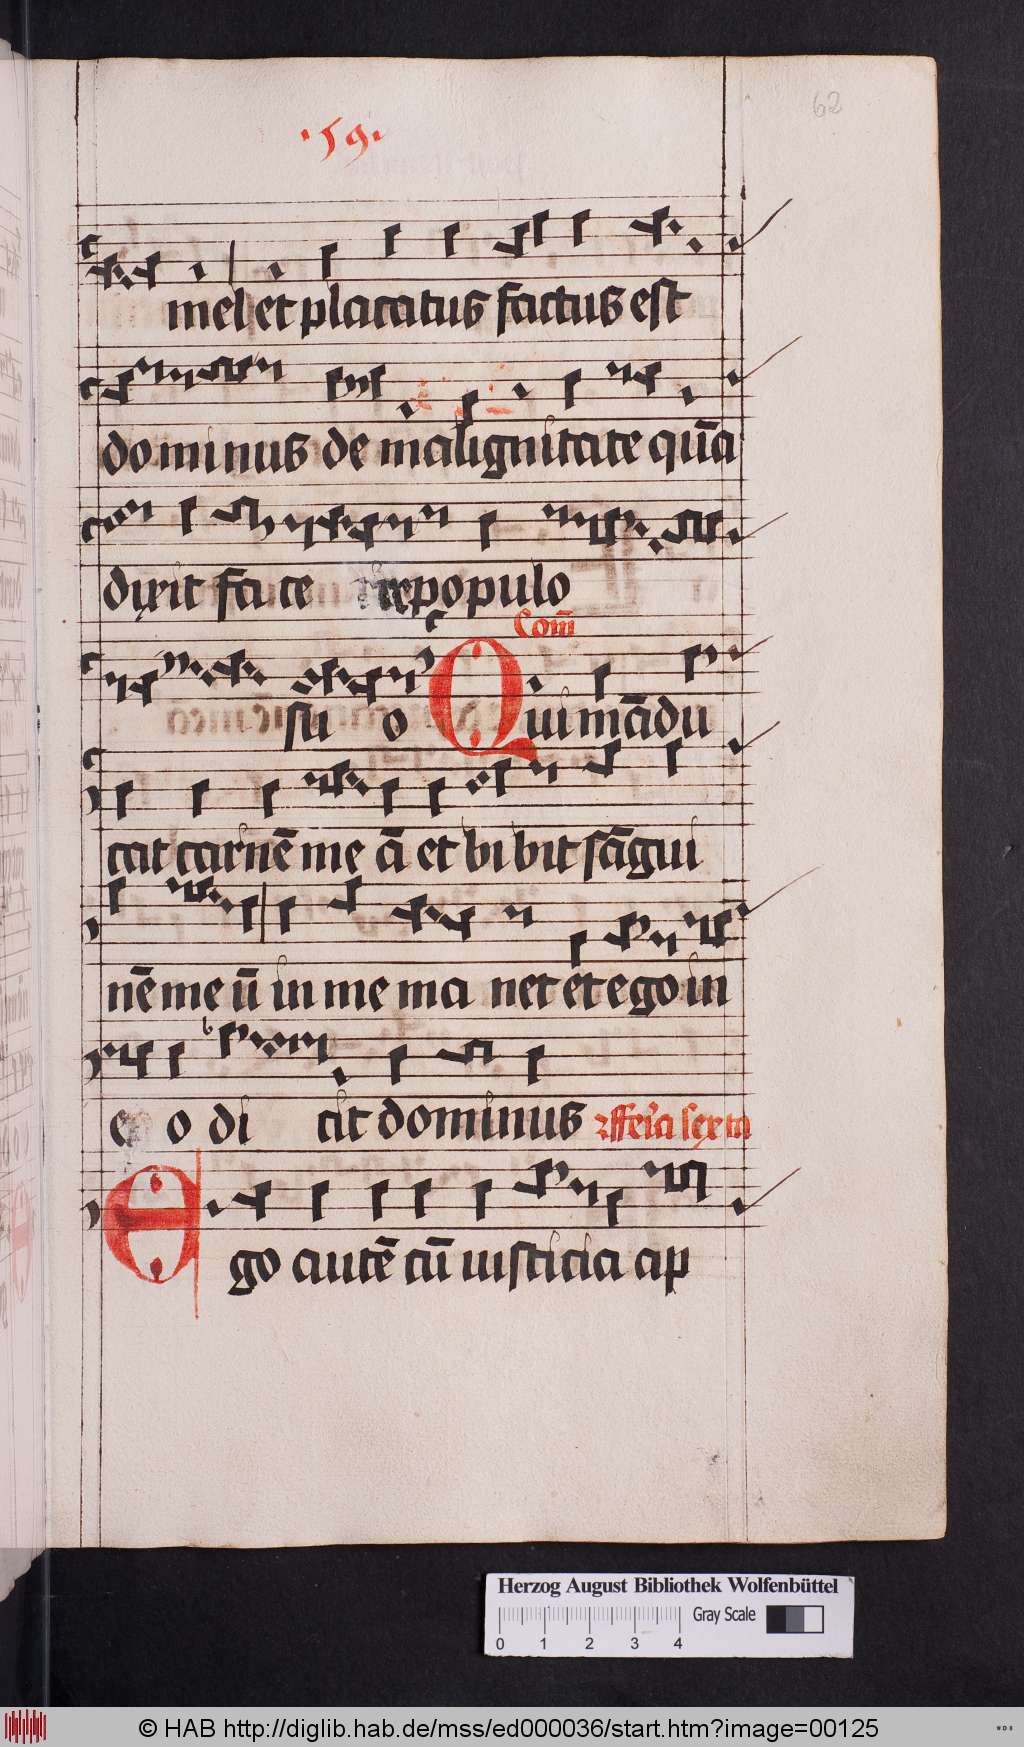 ·59·
62
mel et placatus factus est
dominus de malignitate qu̅a
dixit facere populo
Com̅
su o Qui ma̅du
cat carne̅ me a̅ et bibit sa̅gui
ne̅ me u̅ in me ma net et ego in
e o di cit dominus feria sexta
Ego aute̅ cu̅ iusticia ap
Herzog August Bibliothek Wolfenbüttel
Gray Scale
0 1 2 3 4
© HAB http://diglib.hab.de/mss/ed000036/start.htm?image=00125